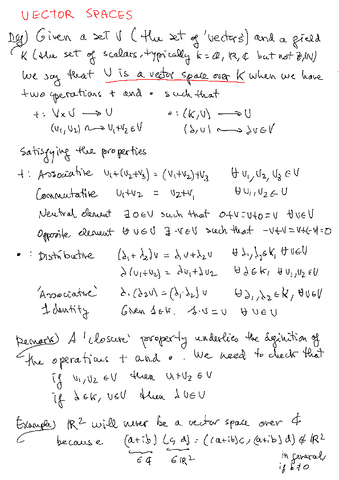 VECTOR SPACES
Def) Given a set V (the set of 'vectors') and a field
K (the set of scalars, typically k = Q, R, C but not Z, N)
We say that V is a vector space over K when we have
two operations + and • such that
+: V×V → V    •: (K, V) → V
(v₁, v₂) ⇝ v₁+v₂ ∈ V    (λ, v) ⇝ λv ∈ V
Satisfying the properties
+: Associative v₁+(v₂+v₃) = (v₁+v₂)+v₃ ∀ v₁, v₂, v₃ ∈ V
Commutative v₁+v₂ = v₂+v₁ ∀ v₁, v₂ ∈ V
Neutral element ∃ 0 ∈ V such that 0+v = v+0 = v ∀v ∈ V
Opposite element ∀ v ∈ V ∃ -v ∈ V such that -v+v = v+(-v) = 0
•: Distributive (λ₁+λ₂)v = λ₁v + λ₂v ∀ λ₁, λ₂ ∈ K, ∀ v ∈ V
λ(v₁+v₂) = λv₁ + λv₂ ∀ λ ∈ K, ∀ v₁, v₂ ∈ V
'Associative' λ₁(λ₂v) = (λ₁·λ₂)v ∀ λ₁, λ₂ ∈ K, ∀ v ∈ V
Identity Given 1 ∈ K. 1·v = v ∀ v ∈ V
Remark) A 'closure' property underlies the definition of
the operations + and •. We need to check that
if v₁, v₂ ∈ V then v₁+v₂ ∈ V
if λ ∈ K, v ∈ V then λv ∈ V
Example) R² will never be a vector space over C
because (a+ib) (c, d) = ((a+ib)c, (a+ib)d) ∉ R²
∈ C    ∈ R²    in general
if b ≠ 0